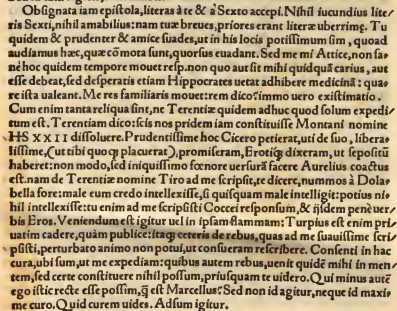 Obsignata iam epistola, literas à te & à Sexto accepi. Nihil iucundius lite/
ris Sexti, nihil amabilius: nam tuæ breues, priores erant literæ uberrimę. Tu
quidem & prudenter & amice suades, ut in his locis potissimum sim, quoad
audiamus hæc, quæ cõmota sunt, quorsus euadant. Sed me mi Attice, non sa-
nè hoc quidem tempore mouet resp. non quo aut sit mihi quidquã carius, aut
esse debeat, sed desperatis etiam Hippocrates uetat adhibere medicinã: qua=
re ista ualeant. Me res familiaris mouet: rem dico? immo uero existimatio.
Cum enim tanta reliqua sint, ne Terentiæ quidem adhuc quod solum expedi/
tum est. Terentiam dico: scis nos pridem iam constituisse Montani nomine
HS XXII dissoluere. Prudentissime hoc Cicero petierat, uti de suo, libera=
lissime, (ut tibi quoq; placuerat), promiseram, Erotiq; dixeram, ut sepositũ
haberet: non modo, sed iniquissimo fœnore uersurã facere Aurelius coactus
est. nam de Terentiæ nomine Tiro ad me scripsit, te dicere, nummos à Dola=
bella fore: male eum credo intellexisse, si quisquam male intelligit: potius ni=
hil intellexisse: tu enim ad me scripsisti Cocceì responsum, & ijsdem penè uer=
bis Eros. Veniendum est igitur uel in ipsam flammam: Turpius est enim pri=
uatim cadere, quàm publice: itaq; ceteris de rebus, quas ad me suauissime scri=
psisti, perturbato animo non potui, ut consueram rescribere. Consenti in hac
cura, ubi sum, ut me expediam: quibus autem rebus, uenit quidē mihi in men=
tem, sed certe constituere nihil possum, priusquam te uidero. Qui minus autē
ego istic recte esse possim, q̃ est Marcellus? Sed non id agitur, neque id maxi=
me curo. Quid curem uides. Adsum igitur.